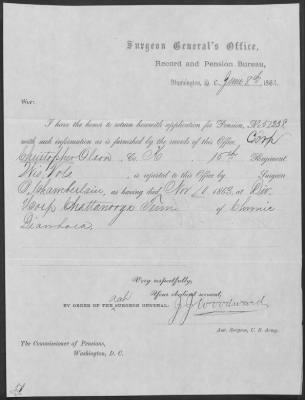 Surgeon General's Office,
Record and Pension Bureau,
Washington, D. C., June 8th, 186
Sir:
I have the honor to return herewith application for Pension, No. 51238
with such information as is furnished by the records of this Office. Corp
Christopher Olson Co. K 15th Regiment
Wis. Vols is reported to this Office by Surgeon
O. Chamberlain, as having died Nov 1863, at Div.
Hosp Chattanooga Tenn of Chronic
Diarrhoea.
Very respectfully,
Your obedient servant,
BY ORDER OF THE SURGEON GENERAL.
J. J. Woodward
Ass. Surgeon, U. S. Army.
The Commissioner of Pensions,
Washington, D. C.